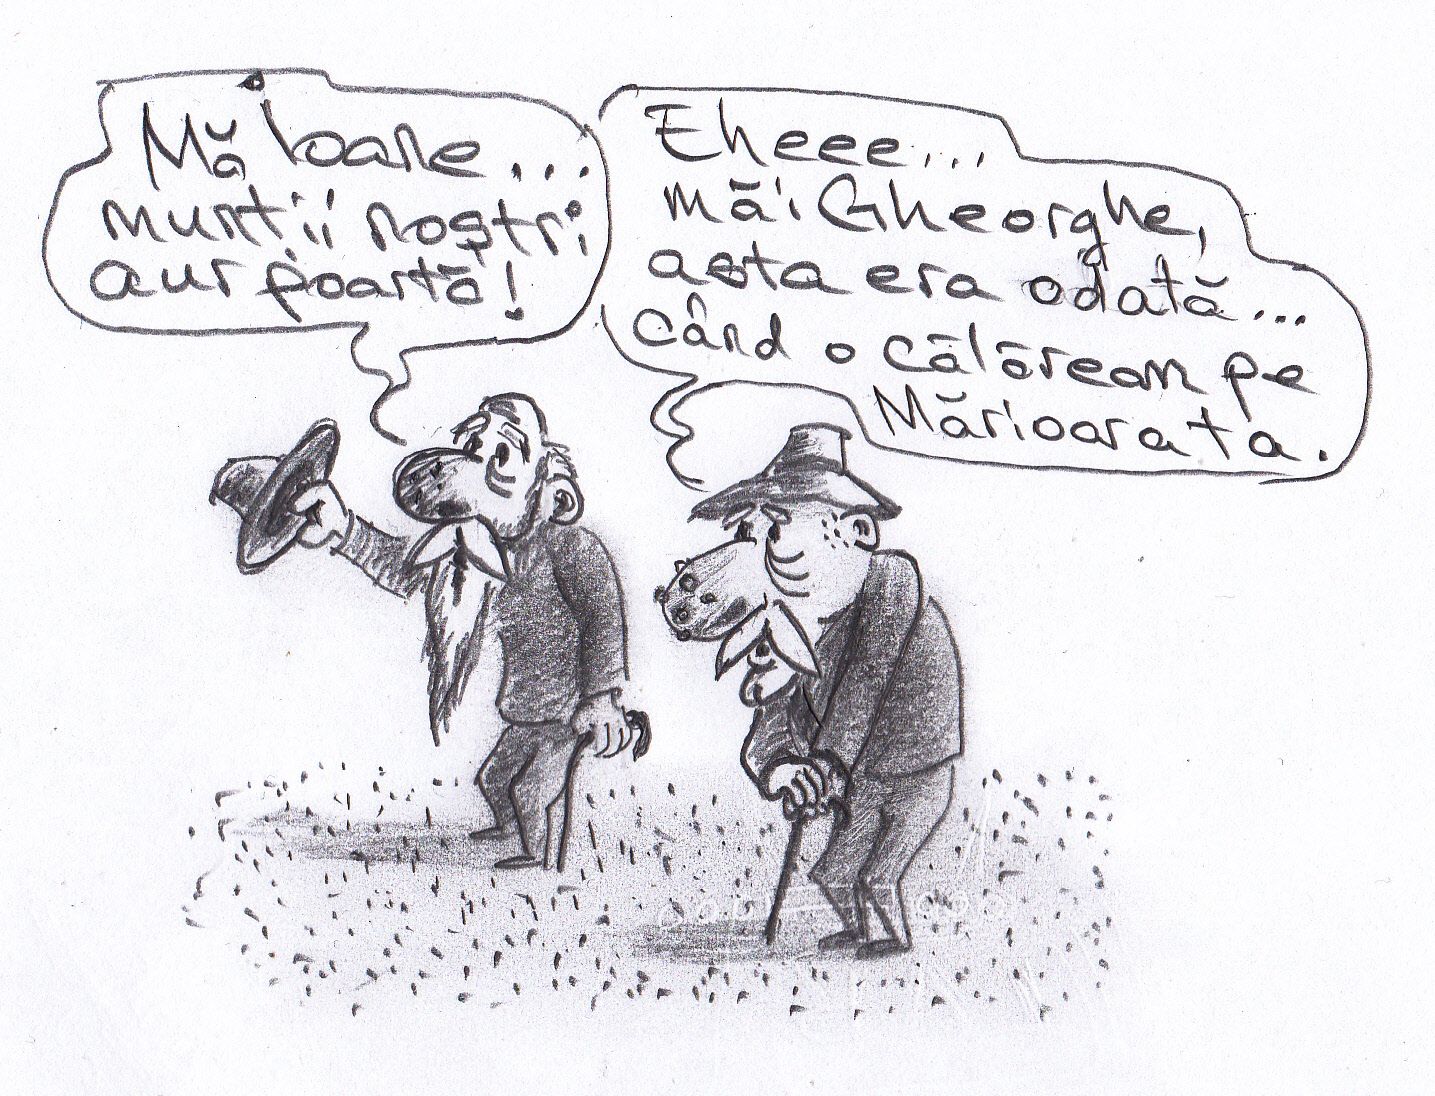 Mă Ioane...
munții noștri
aur poartă!
Eheee...
măi Gheorghe,
asta era odată...
Când o călărean pe
Mărioarata.